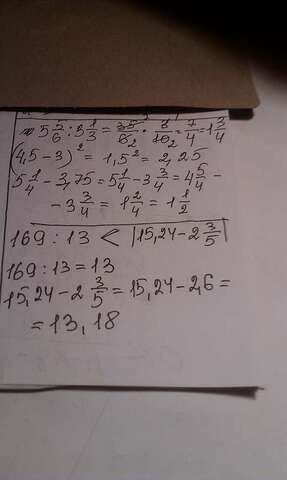 5 5/6 : 3 1/3 = 35/6 2 · 3/10 2 = 7/4 = 1 3/4
(4,5 - 3)² = 1,5² = 2,25
5 1/4 - 3,75 = 5 1/4 - 3 3/4 = 4 5/4 -
- 3 3/4 = 1 2/4 = 1 1/2
169 : 13 < |15,24 - 2 3/5|
169 : 13 = 13
15,24 - 2 3/5 = 15,24 - 2,6 =
= 13,18